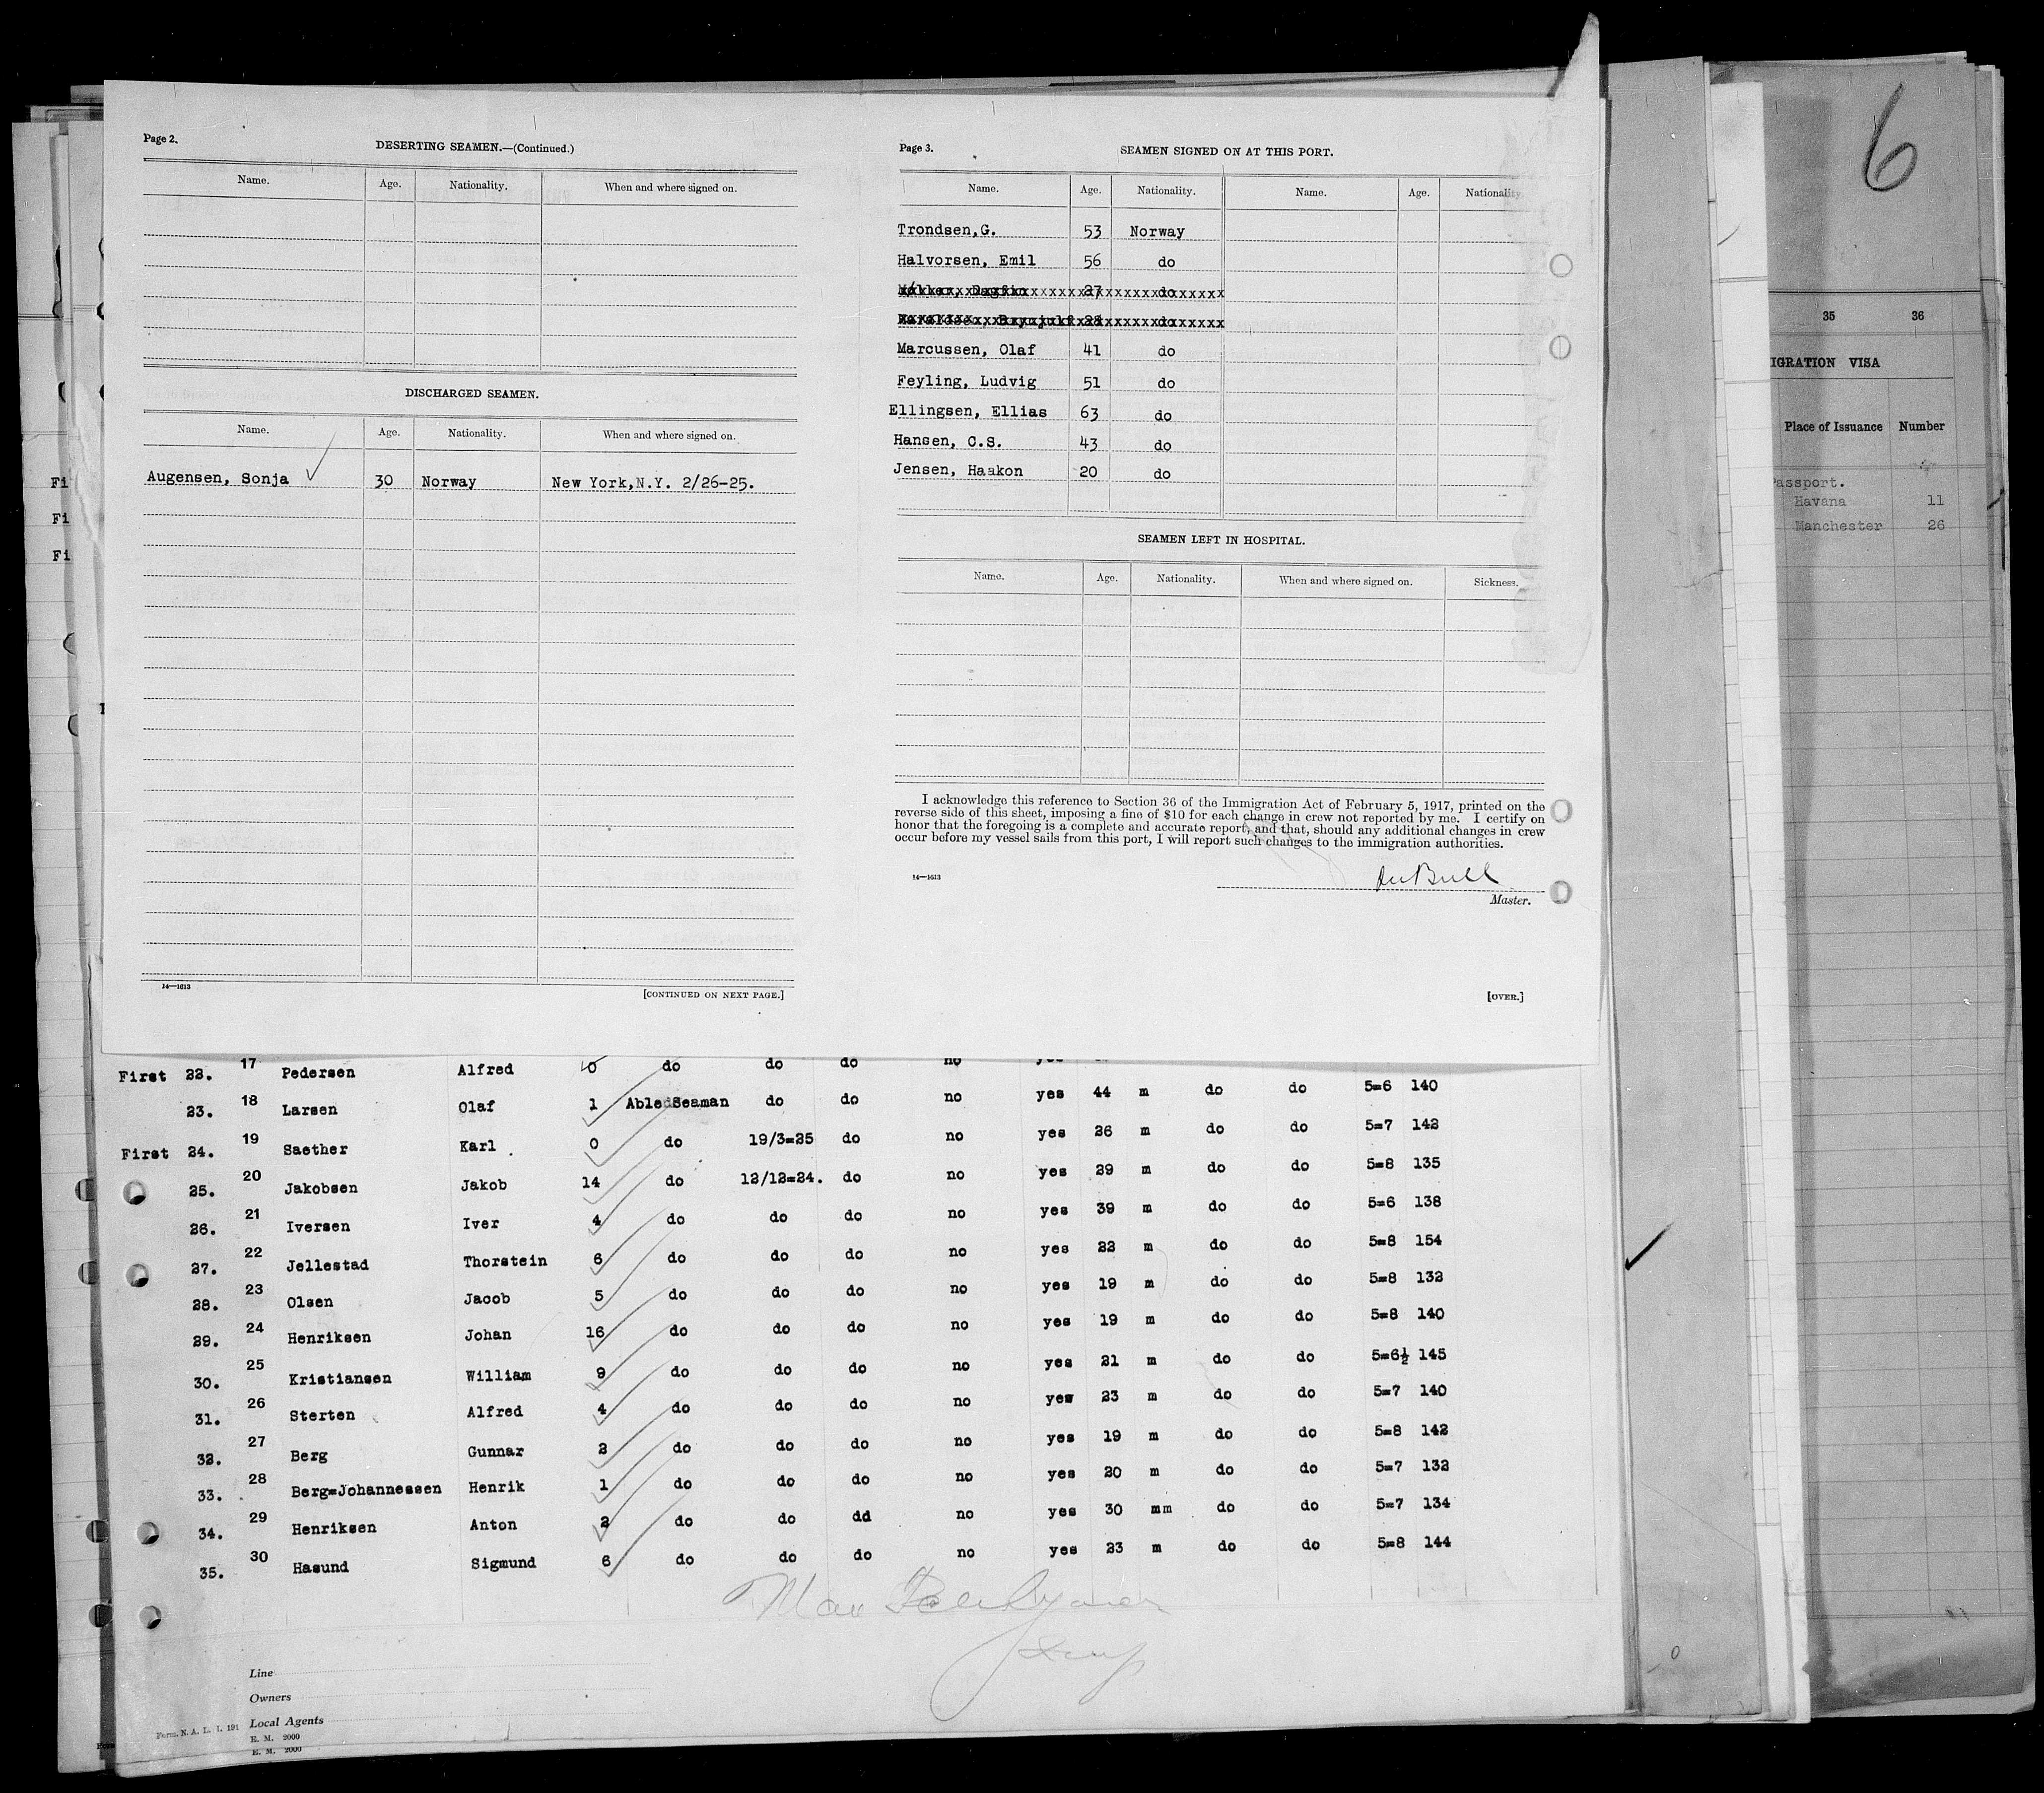 6
Page 2.
DESERTING SEAMEN.—(Continued.)
Name. Age. Nationality. When and where signed on.
DISCHARGED SEAMEN.
Name. Age. Nationality. When and where signed on.
Augensen, Sonja 30 Norway New York, N.Y. 2/26-25.
14—1613
[CONTINUED ON NEXT PAGE.]
Page 3.
SEAMEN SIGNED ON AT THIS PORT.
Name. Age. Nationality. Name. Age. Nationality
Trondsen,G. 53 Norway
Halvorsen, Emil 56 do
Dagfin 27 do
28 do
Marcussen, Olaf 41 do
Feyling, Ludvig 51 do
Ellingsen, Ellias 63 do
Hansen, C.S. 43 do
Jensen, Haakon 20 do
SEAMEN LEFT IN HOSPITAL.
Name. Age. Nationality. When and where signed on. Sickness.
I acknowledge this reference to Section 36 of the Immigration Act of February 5, 1917, printed on the
reverse side of this sheet, imposing a fine of $10 for each change in crew not reported by me. I certify on
honor that the foregoing is a complete and accurate report, and that, should any additional changes in crew
occur before my vessel sails from this port, I will report such changes to the immigration authorities.
14—1613
Bull
Master.
[OVER.]
35 36
IGRATION VISA
Place of Issuance Number
Passport.
Havana 11
Manchester 26
Fi
Fi
Fi
First 22. 17 Pedersen Alfred 0 do do do no
23. 18 Larsen Olaf 1 Able Seaman do do no yes 44 m do do 5=6 140
First 24. 19 Saether Karl 0 do 19/3=25 do no yes 26 m do do 5=7 142
25. 20 Jakobsen Jakob 14 do 12/12=24. do no yes 29 m do do 5=8 135
26. 21 Iversen Iver 4 do do do no yes 39 m do do 5=6 138
27. 22 Jellestad Thorstein 6 do do do no yes 22 m do do 5=8 154
28. 23 Olsen Jacob 5 do do do no yes 19 m do do 5=8 132
29. 24 Henriksen Johan 16 do do do no yes 19 m do do 5=8 140
30. 25 Kristiansen William 9 do do do no yes 21 m do do 5=6½ 145
31. 26 Sterten Alfred 4 do do do no yew 23 m do do 5=7 140
32. 27 Berg Gunnar 2 do do do no yes 19 m do do 5=8 142
33. 28 Berg=Johannessen Henrik 1 do do do no yes 20 m do do 5=7 132
34. 29 Henriksen Anton 2 do do dd no yes 30 mm do do 5=7 134
35. 30 Hasund Sigmund 6 do do do no yes 23 m do do 5=8 144
Max
Line
Owners
Local Agents
Form. N. A. L. I. 191
E. M. 2000
E. M. 2000